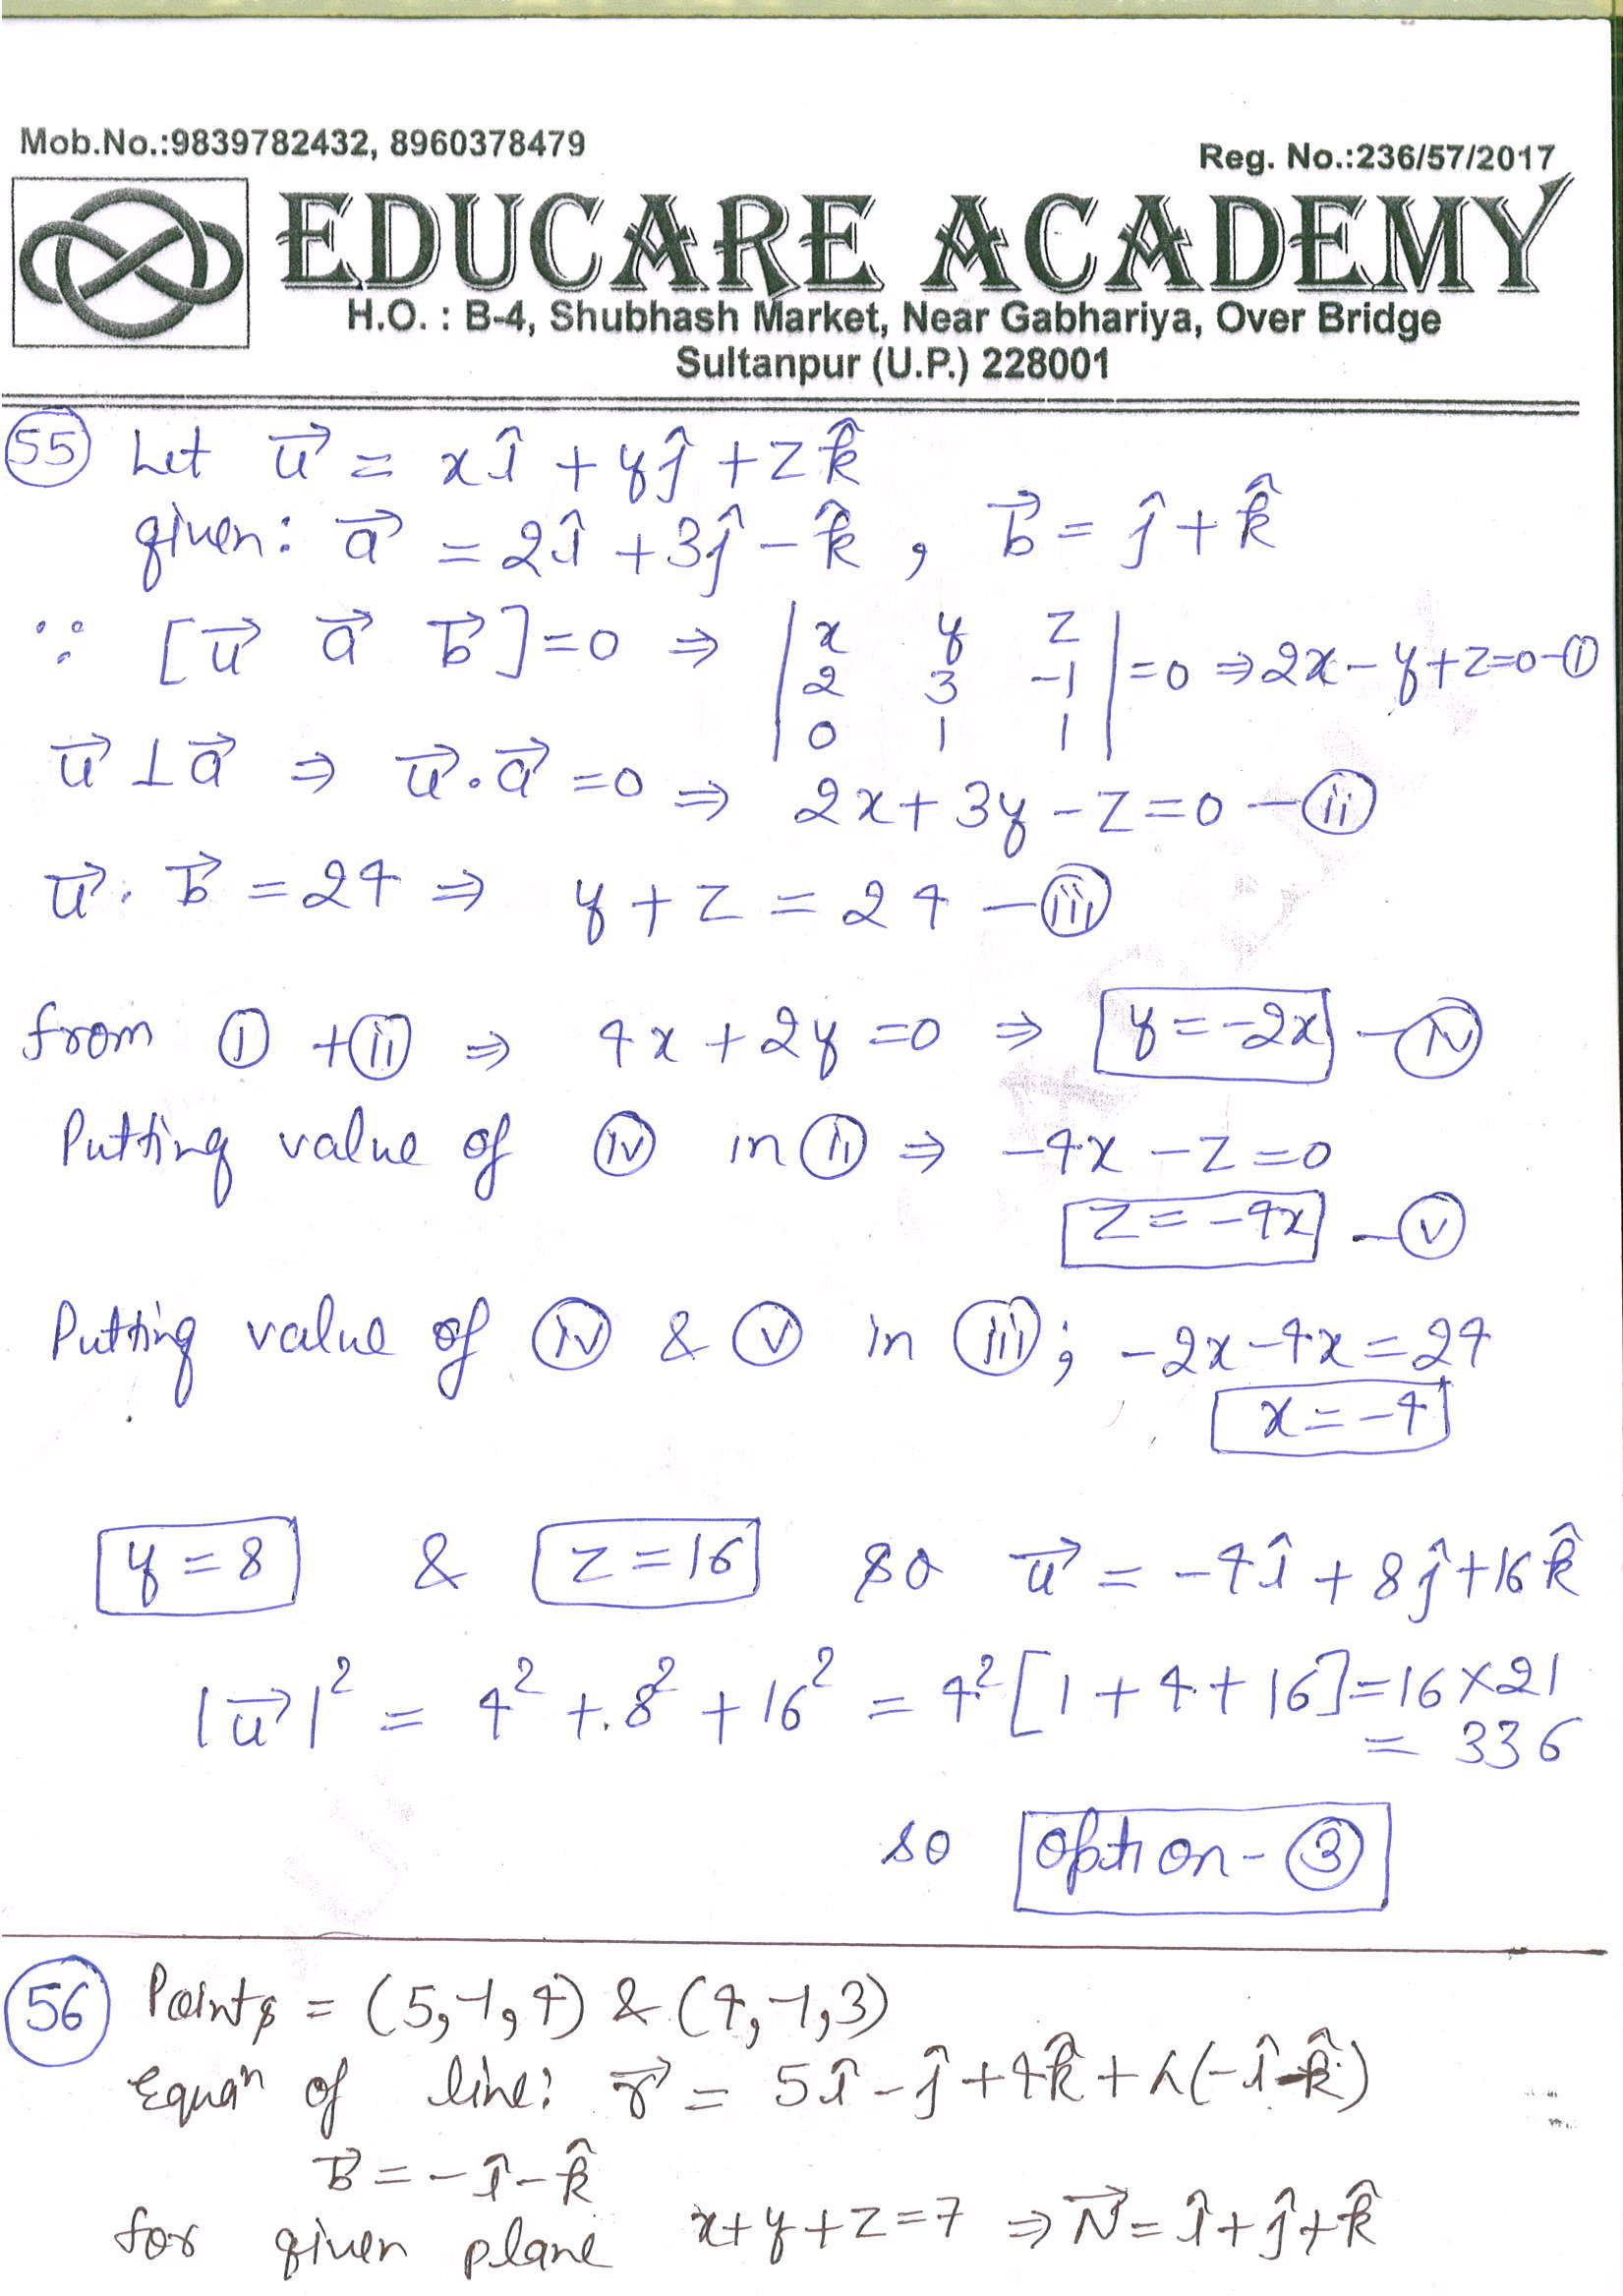 Mob.No.:9839782432, 8960378479
Reg. No.:236/57/2017
EDUCARE ACADEMY
H.O. : B-4, Shubhash Market, Near Gabhariya, Over Bridge
Sultanpur (U.P.) 228001
(55) Let u⃗ = xî + yĵ + zk̂
given: a⃗ = 2î + 3ĵ - k̂ , b⃗ = ĵ + k̂
∵ [u⃗ a⃗ b⃗] = 0 ⇒ |x y z; 2 3 -1; 0 1 1| = 0 ⇒ 2x - y + z = 0 - (i)
u⃗ ⊥ a⃗ ⇒ u⃗ . a⃗ = 0 ⇒ 2x + 3y - z = 0 - (ii)
u⃗ . b⃗ = 24 ⇒ y + z = 24 - (iii)
from (i) + (ii) ⇒ 4x + 2y = 0 ⇒ y = -2x - (iv)
Putting value of (iv) in (ii) ⇒ -4x - z = 0
z = -4x - (v)
Putting value of (iv) & (v) in (iii) ; -2x - 4x = 24
x = -4
y = 8 & z = 16 so u⃗ = -4î + 8ĵ + 16k̂
|u⃗|² = 4² + 8² + 16² = 4² [1 + 4 + 16] = 16 × 21
= 336
so option - (3)
(56) Points = (5, -1, 4) & (4, -1, 3)
Equaⁿ of line: r⃗ = 5î - ĵ + 4k̂ + λ(-î - k̂)
b⃗ = -î - k̂
for given plane x + y + z = 7 ⇒ N⃗ = î + ĵ + k̂